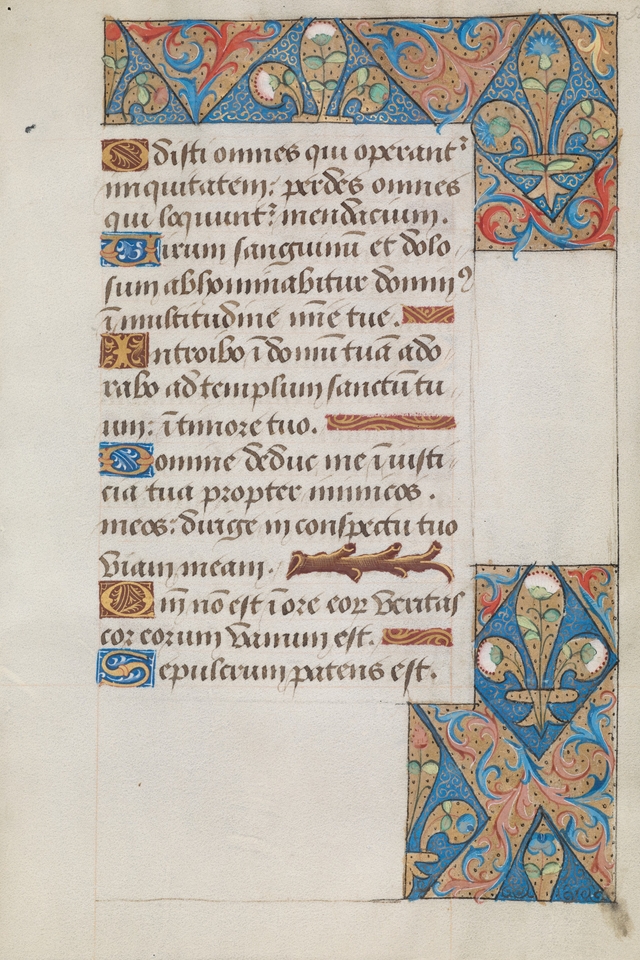 Odisti omnes qui operant᷑
iniquitatem: perdes omnes
qui loquunt᷑ mendacium.
Uirum sanguinū et dolo
sum abhominabitur domin9
ī multitudine mīe tue.
Introibo ī domū tuā ado
rabo ad templum sanctū tu
um: ī timore tuo.
Domine deduc me ī iusti
cia tua propter inimicos.
meos: dirige in conspectu tuo
viam meam.
Qm̄ nō est ī ore eoꝝ veritas
cor eorum vanum est.
Sepulcrum patens est.